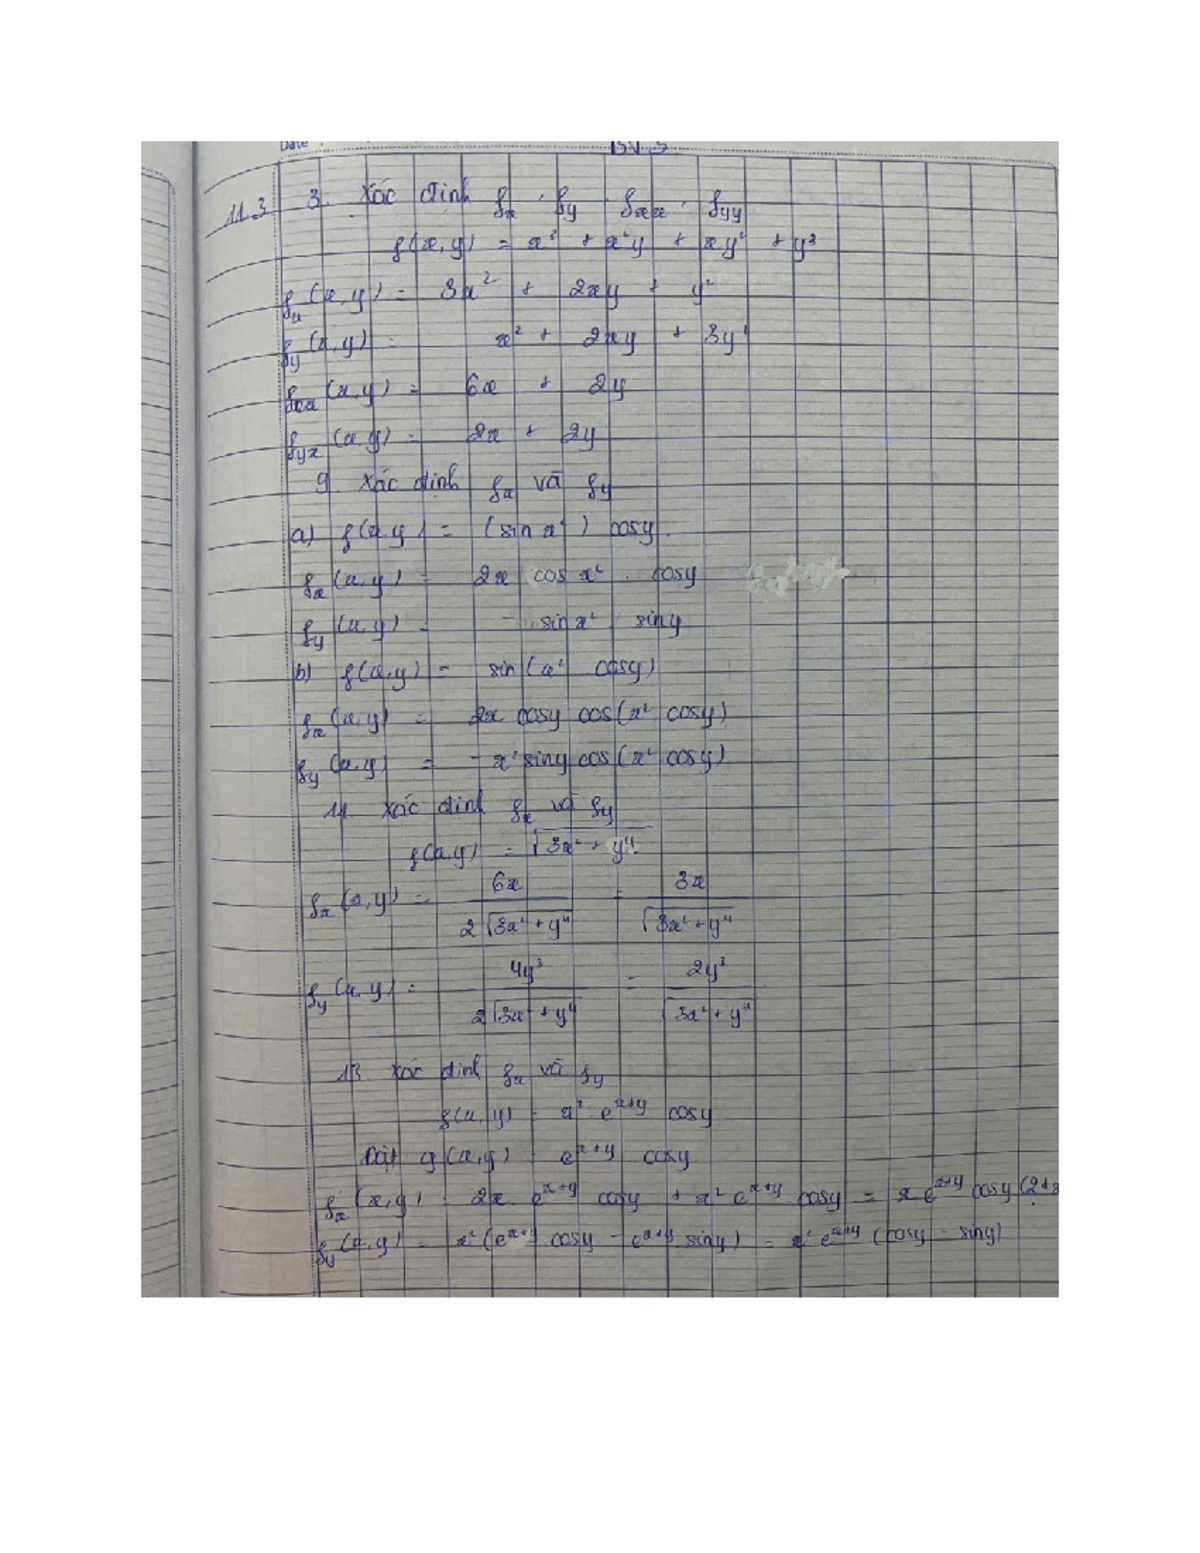 Date
11.3 3. Xác định fx, fy, fxx, fyy
f(x,y) = x³ + x²y + xy² + y³
fx(x,y) = 3x² + 2xy + y²
fy(x,y) = x² + 2xy + 3y²
fxx(x,y) = 6x + 2y
fyx(x,y) = 2x + 2y
9. Xác định fx và fy
a) f(x,y) = (sin x²) cosy
fx(x,y) = 2x cos x² . cosy
fy(x,y) = - sinx² siny
b) f(x,y) = sin(x² cosy)
fx(x,y) = 2x cosy cos(x² cosy)
fy(x,y) = - x² siny cos(x² cosy)
11. Xác định fx và fy
f(x,y) = √(3x² + y⁴)
fx(x,y) = 6x / 2√(3x² + y⁴) = 3x / √(3x² + y⁴)
fy(x,y) = 4y³ / 2√(3x² + y⁴) = 2y³ / √(3x² + y⁴)
13. Xác định fx và fy
f(x,y) = x² e^(x+y) cosy
Đặt g(x,y) = e^(x+y) cosy
fx(x,y) = 2x e^(x+y) cosy + x² e^(x+y) cosy = x e^(x+y) cosy (2+x
fy(x,y) = x² (e^(x+y) cosy - e^(x+y) siny) = x² e^(x+y) (cosy - siny)